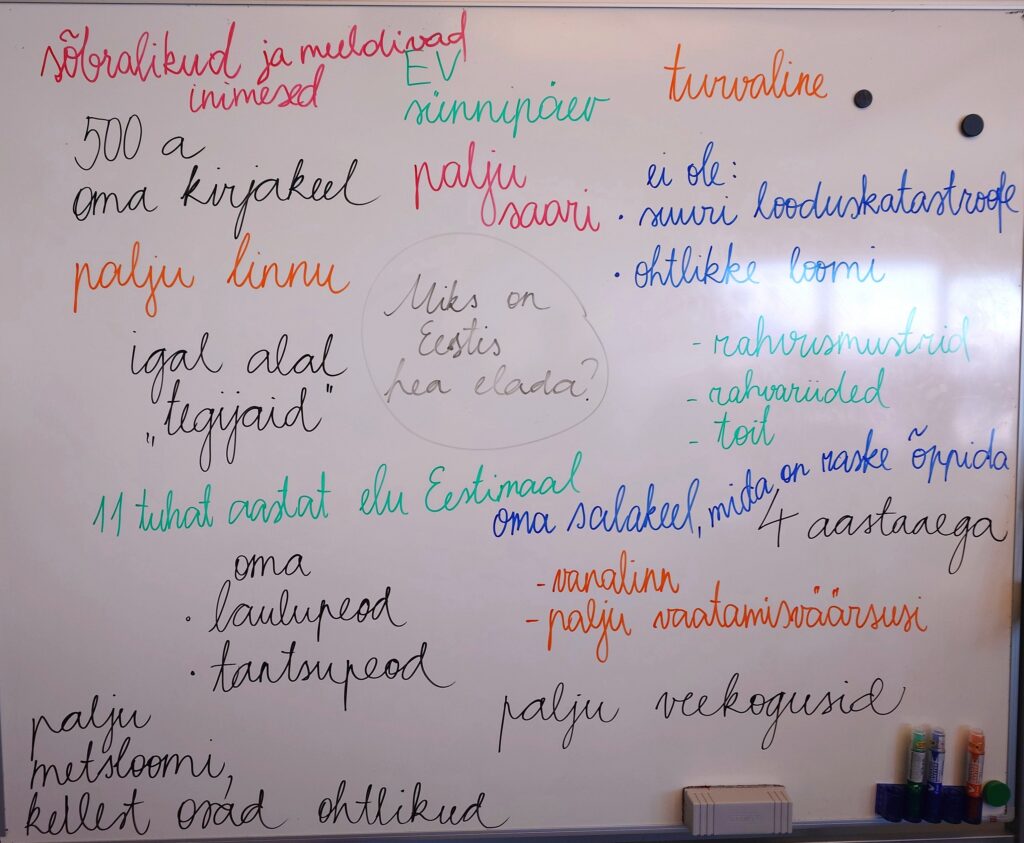 sõbralikud ja meeldivad
inimesed
EV
sünnipäev
turvaline
500 a
oma kirjakeel
palju
saari
ei ole:
• suuri looduskatastroofe
• ohtlikke loomi
palju linnu
Miks on
Eestis
hea elada?
igal alal
„tegijaid"
- rahvusmustrid
- rahvariided
- toit
11 tuhat aastat elu Eestimaal
oma salakeel, mida on raske õppida
4 aastaaega
oma
• laulupeod
• tantsupeod
- vanalinn
- palju vaatamisväärsusi
palju veekogusid
palju
metsloomi,
kellest osad ohtlikud